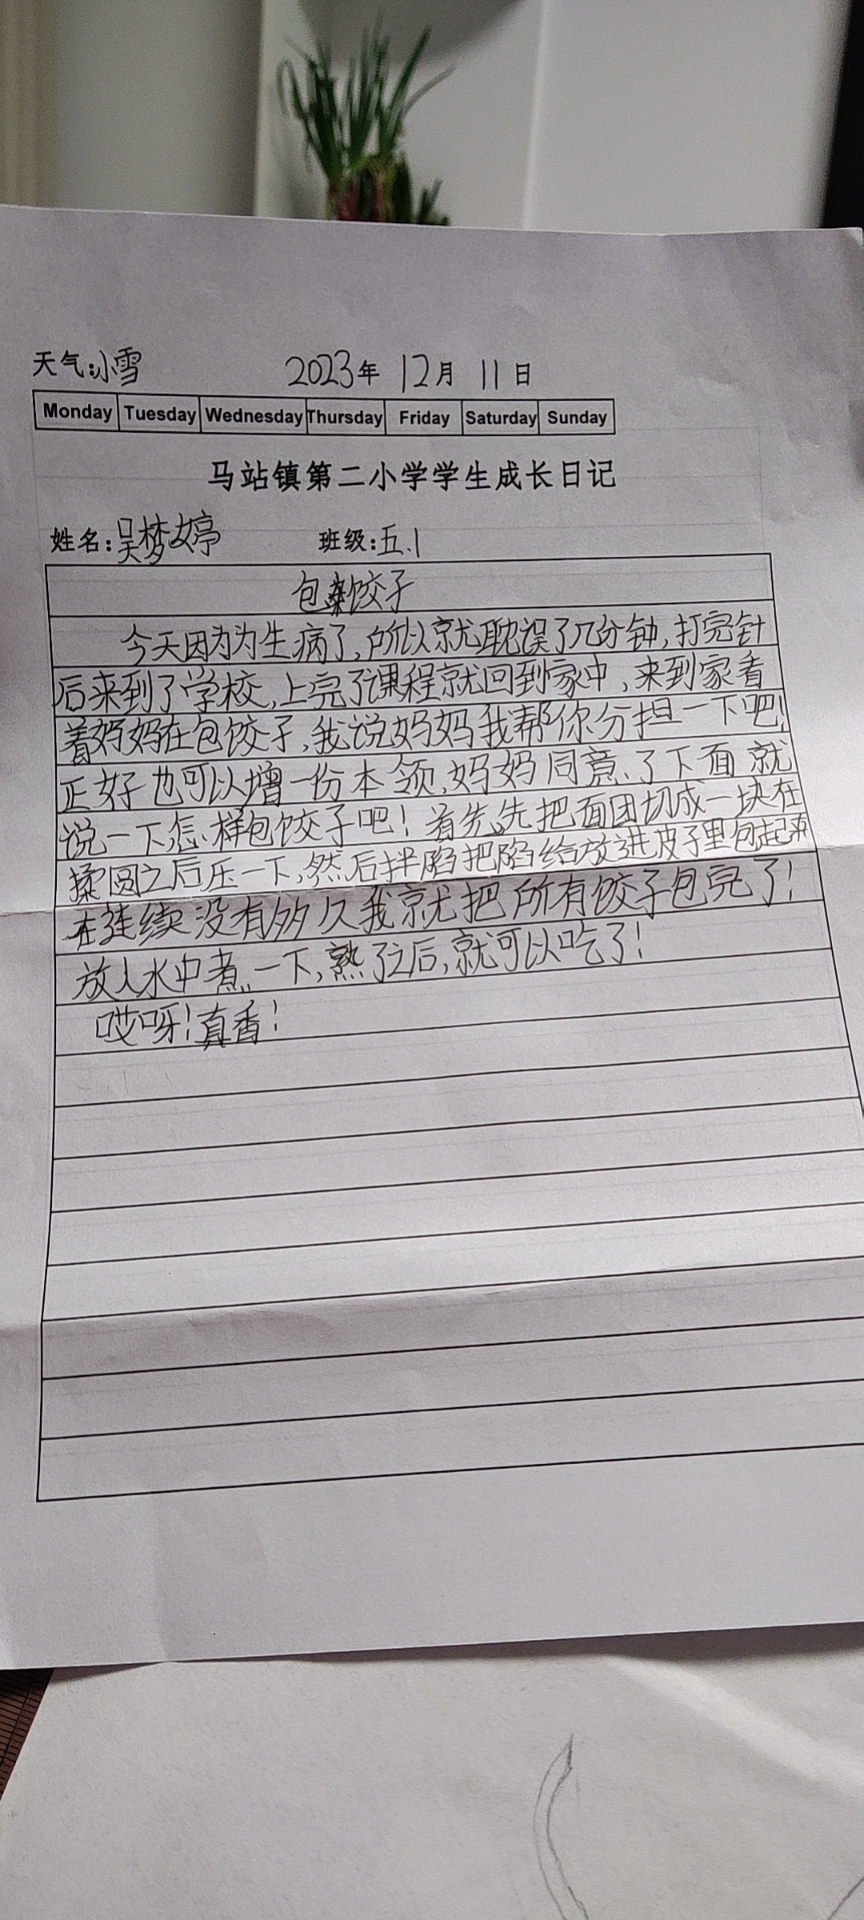 天气:小雪 2023年 12月 11日
Monday Tuesday Wednesday Thursday Friday Saturday Sunday
马站镇第二小学学生成长日记
姓名:吴梦婷 班级:五.1
包饺子
今天因为为生病了,所以就耽误了几分钟,打完针
后来到了学校,上完了课程就回到家中,来到家看
着妈妈在包饺子,我说妈妈我帮你分担一下吧!
正好也可以增一份本领,妈妈同意了下面就
说一下怎样包饺子吧!首先,先把面团切成一块在
揉圆之后压一下,然后拌陷把陷给放进皮子里包起来
在继续没有多久我就把所有饺子包完了!
放入水中煮一下,熟了之后,就可以吃了!
哎呀!真香!